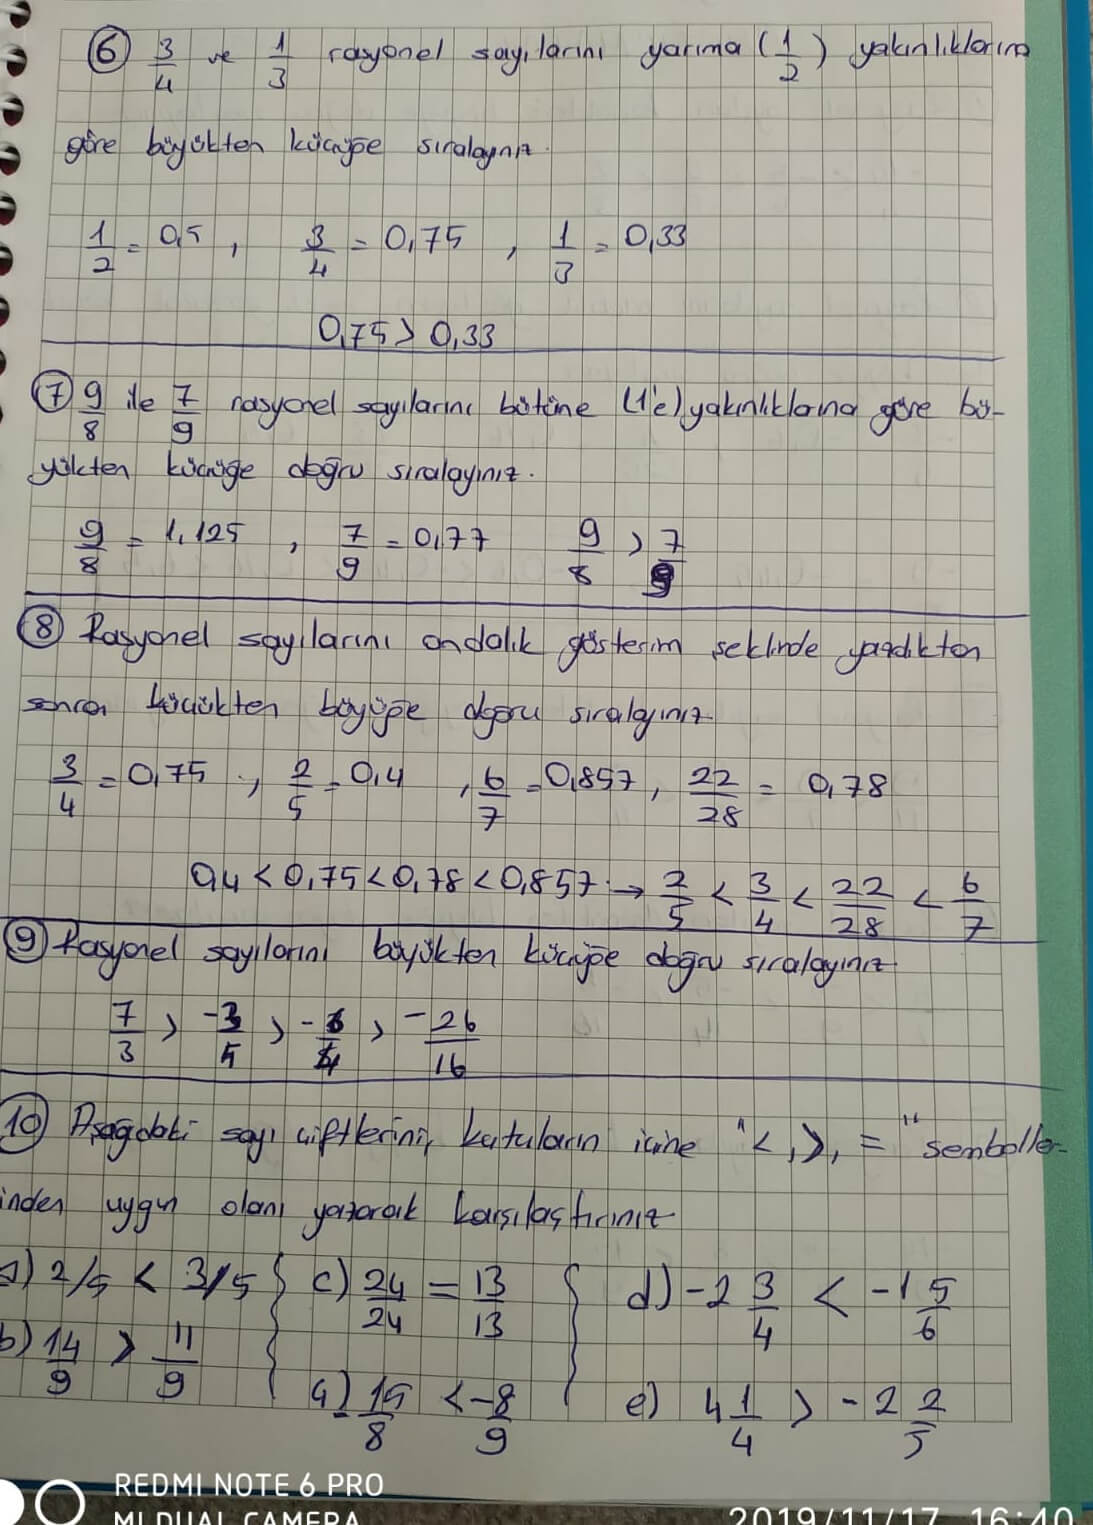 6) 3/4 ve 1/3 rasyonel sayılarını yarıma (1/2) yakınlıklarına
göre büyükten küçüğe sıralayınız.
1/2 = 0,5 , 3/4 = 0,75 , 1/3 = 0,33
0,75 > 0,33
7) 9/8 ile 7/9 rasyonel sayılarını bütüne (1'e) yakınlıklarına göre bü-
yükten küçüğe doğru sıralayınız.
9/8 = 1,125 , 7/9 = 0,77 9/8 > 7/9
8) Rasyonel sayılarını ondalık gösterim seklinde yazdıkten
sonra küçükten büyüğe doğru sıralayınız.
3/4 = 0,75 , 2/5 = 0,4 , 6/7 = 0,857 , 22/28 = 0,78
0,4 < 0,75 < 0,78 < 0,857 → 2/5 < 3/4 < 22/28 < 6/7
9) Rasyonel sayılarını büyükten küçüğe doğru sıralayınız.
7/3 > -3/5 > > -26/16
10) Aşagdaki sayı çiftlerini, kutuların içine "<, >, =" semboller-
inden uygun olanı yazarak karşılaştırınız
a) 2/5 < 3/5 c) 24/24 = 13/13 d) -2 3/4 < -1 5/6
b) 14/9 > 11/9 ç) -15/8 < -8/9 e) 4 1/4 > -2 2/5
REDMI NOTE 6 PRO
MI DUAL CAMERA
2019/11/17 16:40